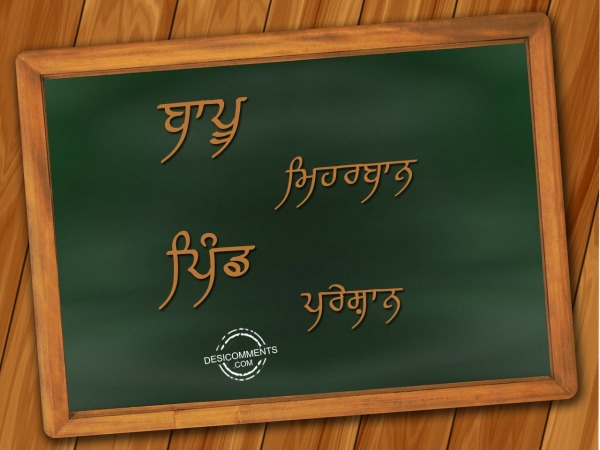 ਬਾਪੂ
ਮਿਹਰਬਾਨ
ਪਿੰਡ
ਪਰੇਸ਼ਾਨ
DESICOMMENTS
.COM